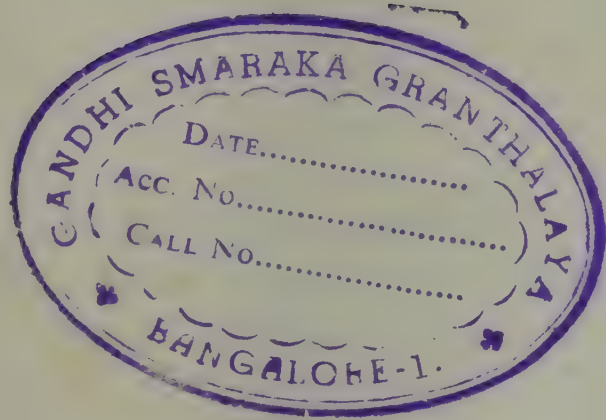 GANDHI SMARAKA GRANTHALAYA
DATE....................
ACC. No..........................
CALL No....................
BANGALORE-1.